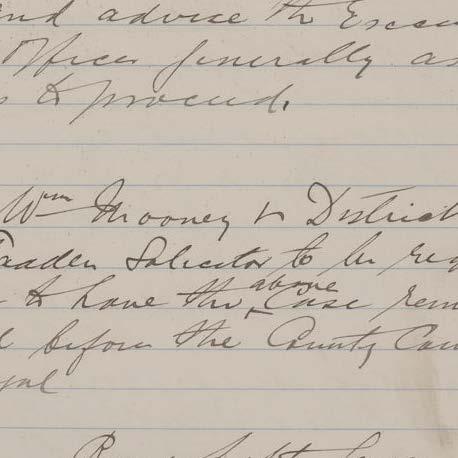 and advise the Execu
Officer generally as
s to proceed.
Wm Mooney v District
Traader Solicitor to be req
to have the above Case rem
before the County Cou
yal